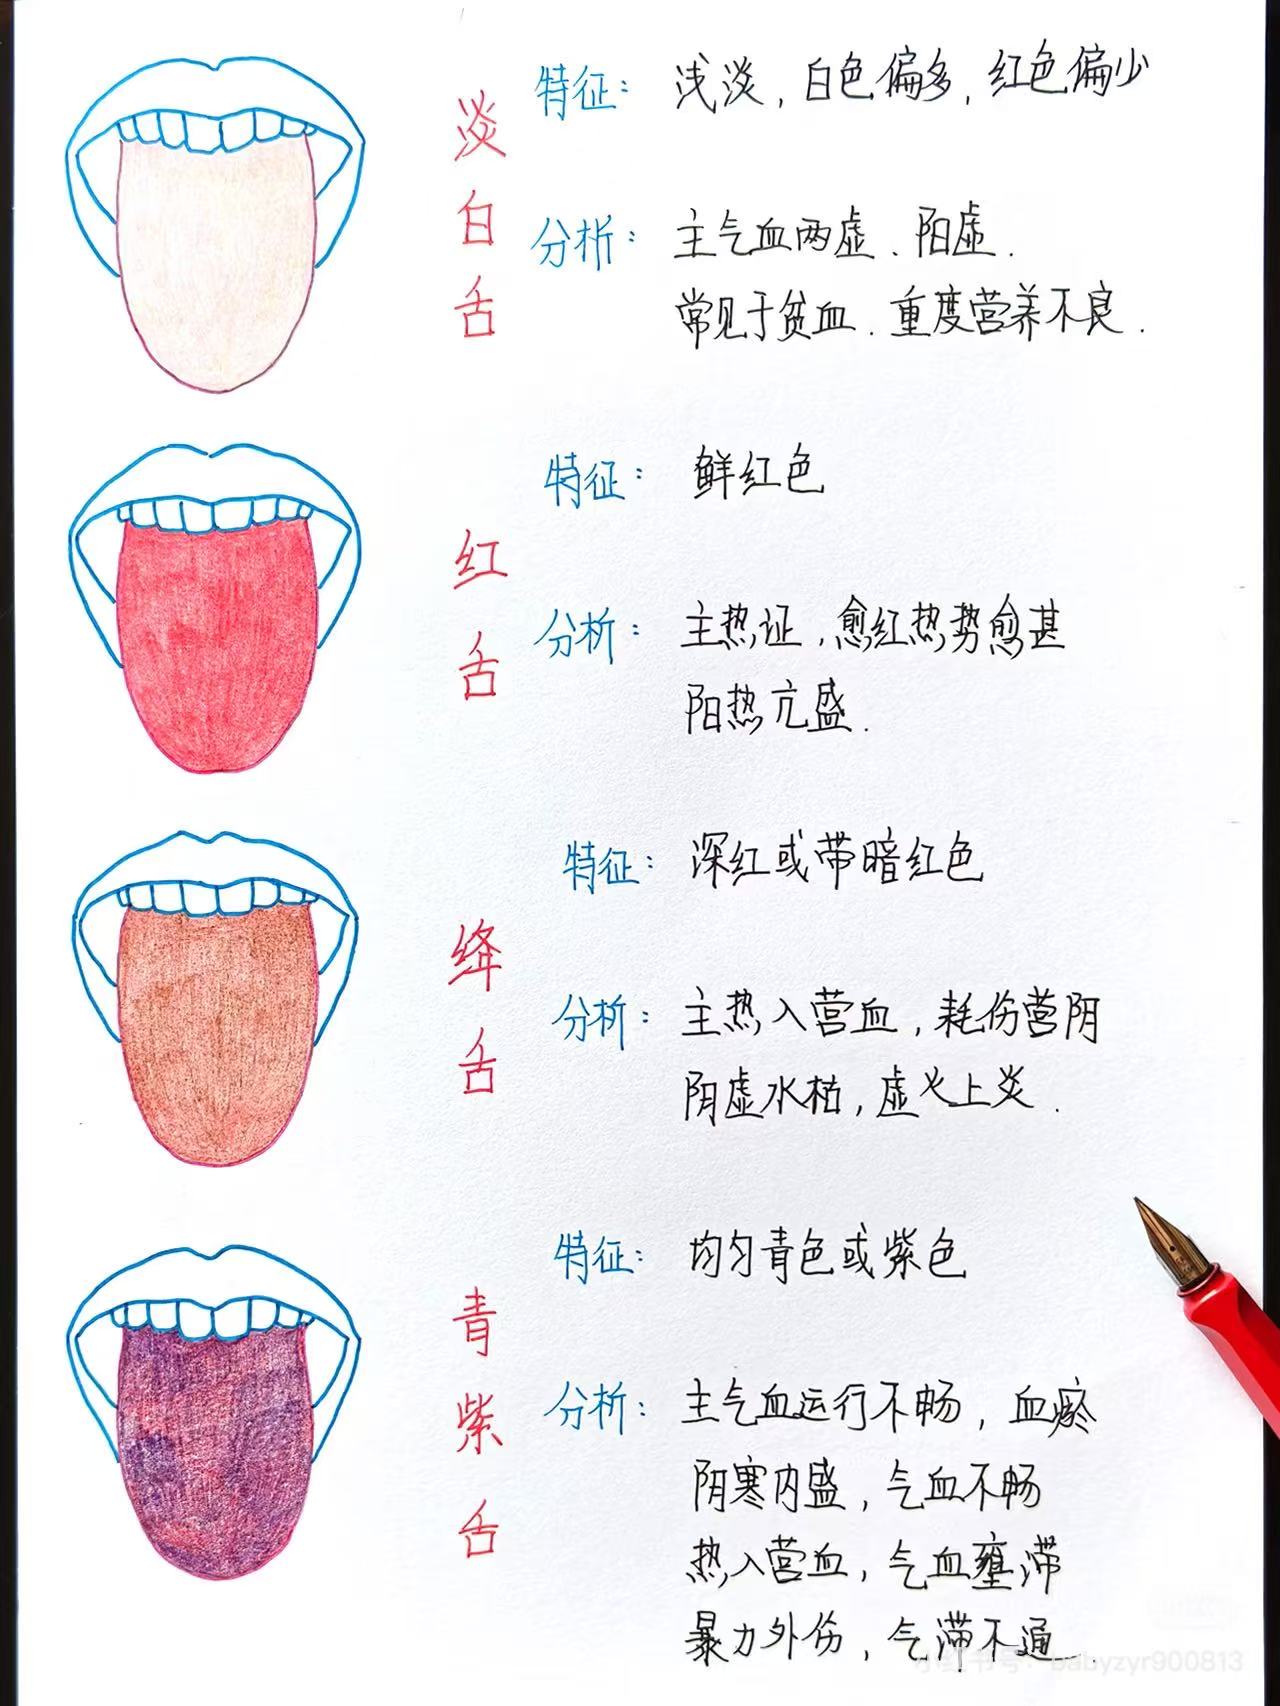 淡白舌
特征：浅淡，白色偏多，红色偏少
分析：主气血两虚、阳虚.
常见于贫血.重度营养不良.
红舌
特征：鲜红色
分析：主热证，愈红热势愈甚
阳热亢盛.
绛舌
特征：深红或带暗红色
分析：主热入营血，耗伤营阴
阴虚水枯，虚火上炎.
青紫舌
特征：均匀青色或紫色
分析：主气血运行不畅，血瘀
阴寒内盛，气血不畅
热入营血，气血壅滞
暴力外伤，气滞不通.
小红书号：babyzyr900813